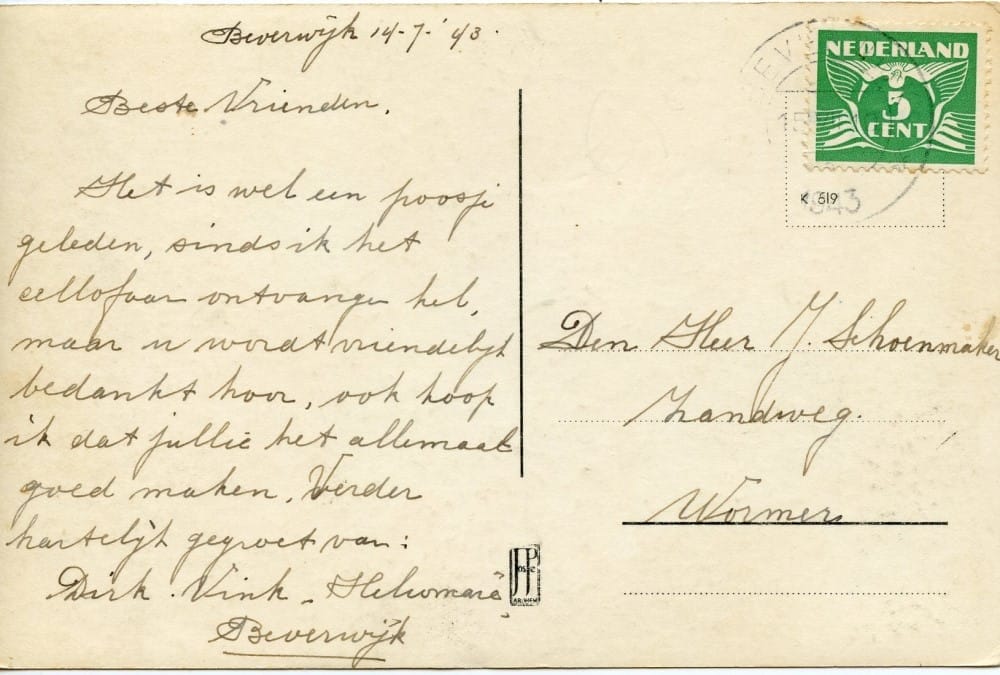 Beverwijk 14-7-'43.
Beste Vrienden,
Het is wel een poosje
geleden, sinds ik het
cellofaan ontvangen heb,
maar u wordt vriendelijk
bedankt hoor, ook hoop
ik dat jullie het allemaal
goed maken. Verder
hartelijk gegroet van:
Dirk Vink - Heliomare
Beverwijk
NEDERLAND
5
CENT
1943
K 519
Den Heer J. Schoenmaker
Zandweg.
Wormer
JP
ARNHEM